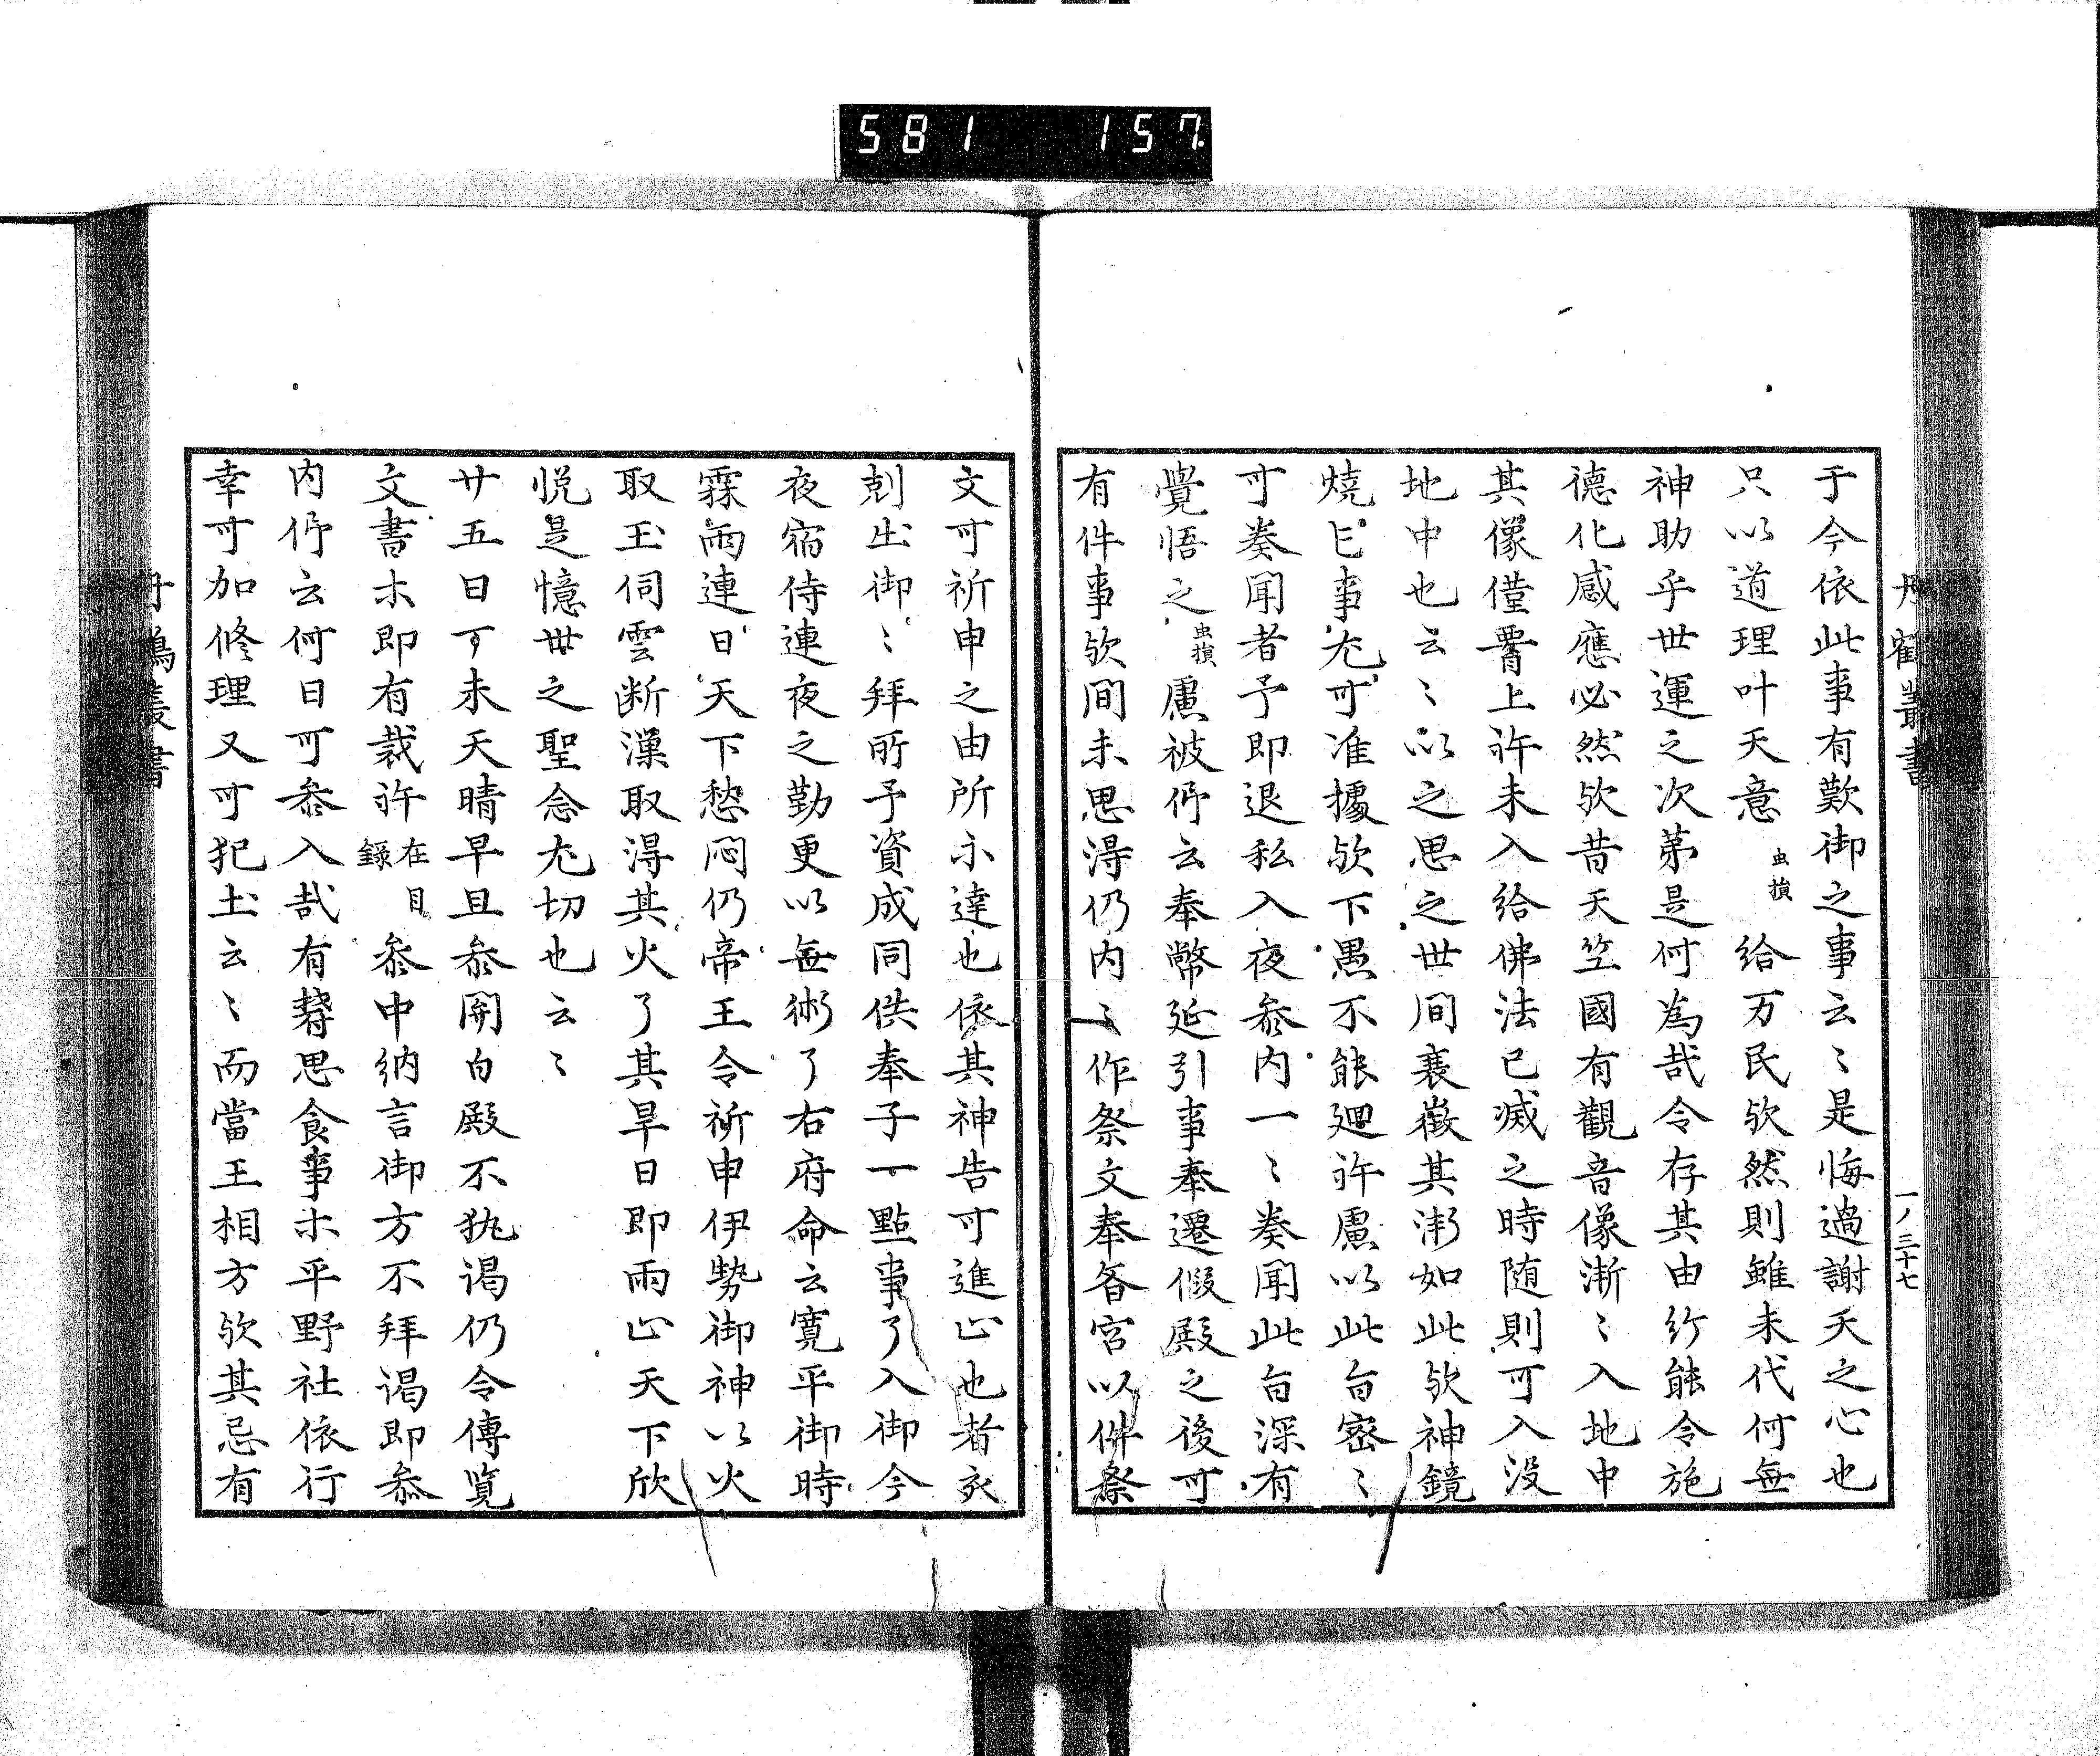 581 157
丹鶴叢書
一ノ三十七
于今依此事有歎御之事云〻是悔過謝天之心也
只以道理叶天意虫損給万民欤然則雖末代何無
神助乎世運之次第是何為哉令存其由給能令施
德化感應必然欤昔天竺國有觀音像漸〻入地中
其像僅胷上許未入給佛法已滅之時随則可入没
地中也云〻以之思之世間衰微其漸如此欤神鏡
燒亡事尤可准據欤下愚不能廻許慮以此旨密〻
可奏聞者予即退私入夜参内一〻奏聞此旨深有
覺悟之虫損慮被仰云奉幣延引事奉遷假殿之後可
有件事欤間未思得仍内〻作祭文奉各宮以件祭
文可祈申之由所示達也依其神告可進止也者亥
剋出御〻拜所予資成同供奉子一點事了入御今
夜宿侍連夜之勤更以無術了右府命云寛平御時
霖雨連日天下愁悶仍帝王令祈申伊勢御神以火
取玉伺雲断漢取得其火了其早日即雨止天下欣
悦是憶世之聖念尤切也云〻
廿五日丁未天晴早旦参関白殿不執谒仍令傳覧
文書ホ即有裁許在目錄参中納言御方不拜谒即参
内仰云何日可参入哉有鬱思食事ホ平野社依行
幸可加修理又可犯土云〻而當王相方欤其忌有
丹鶴叢書